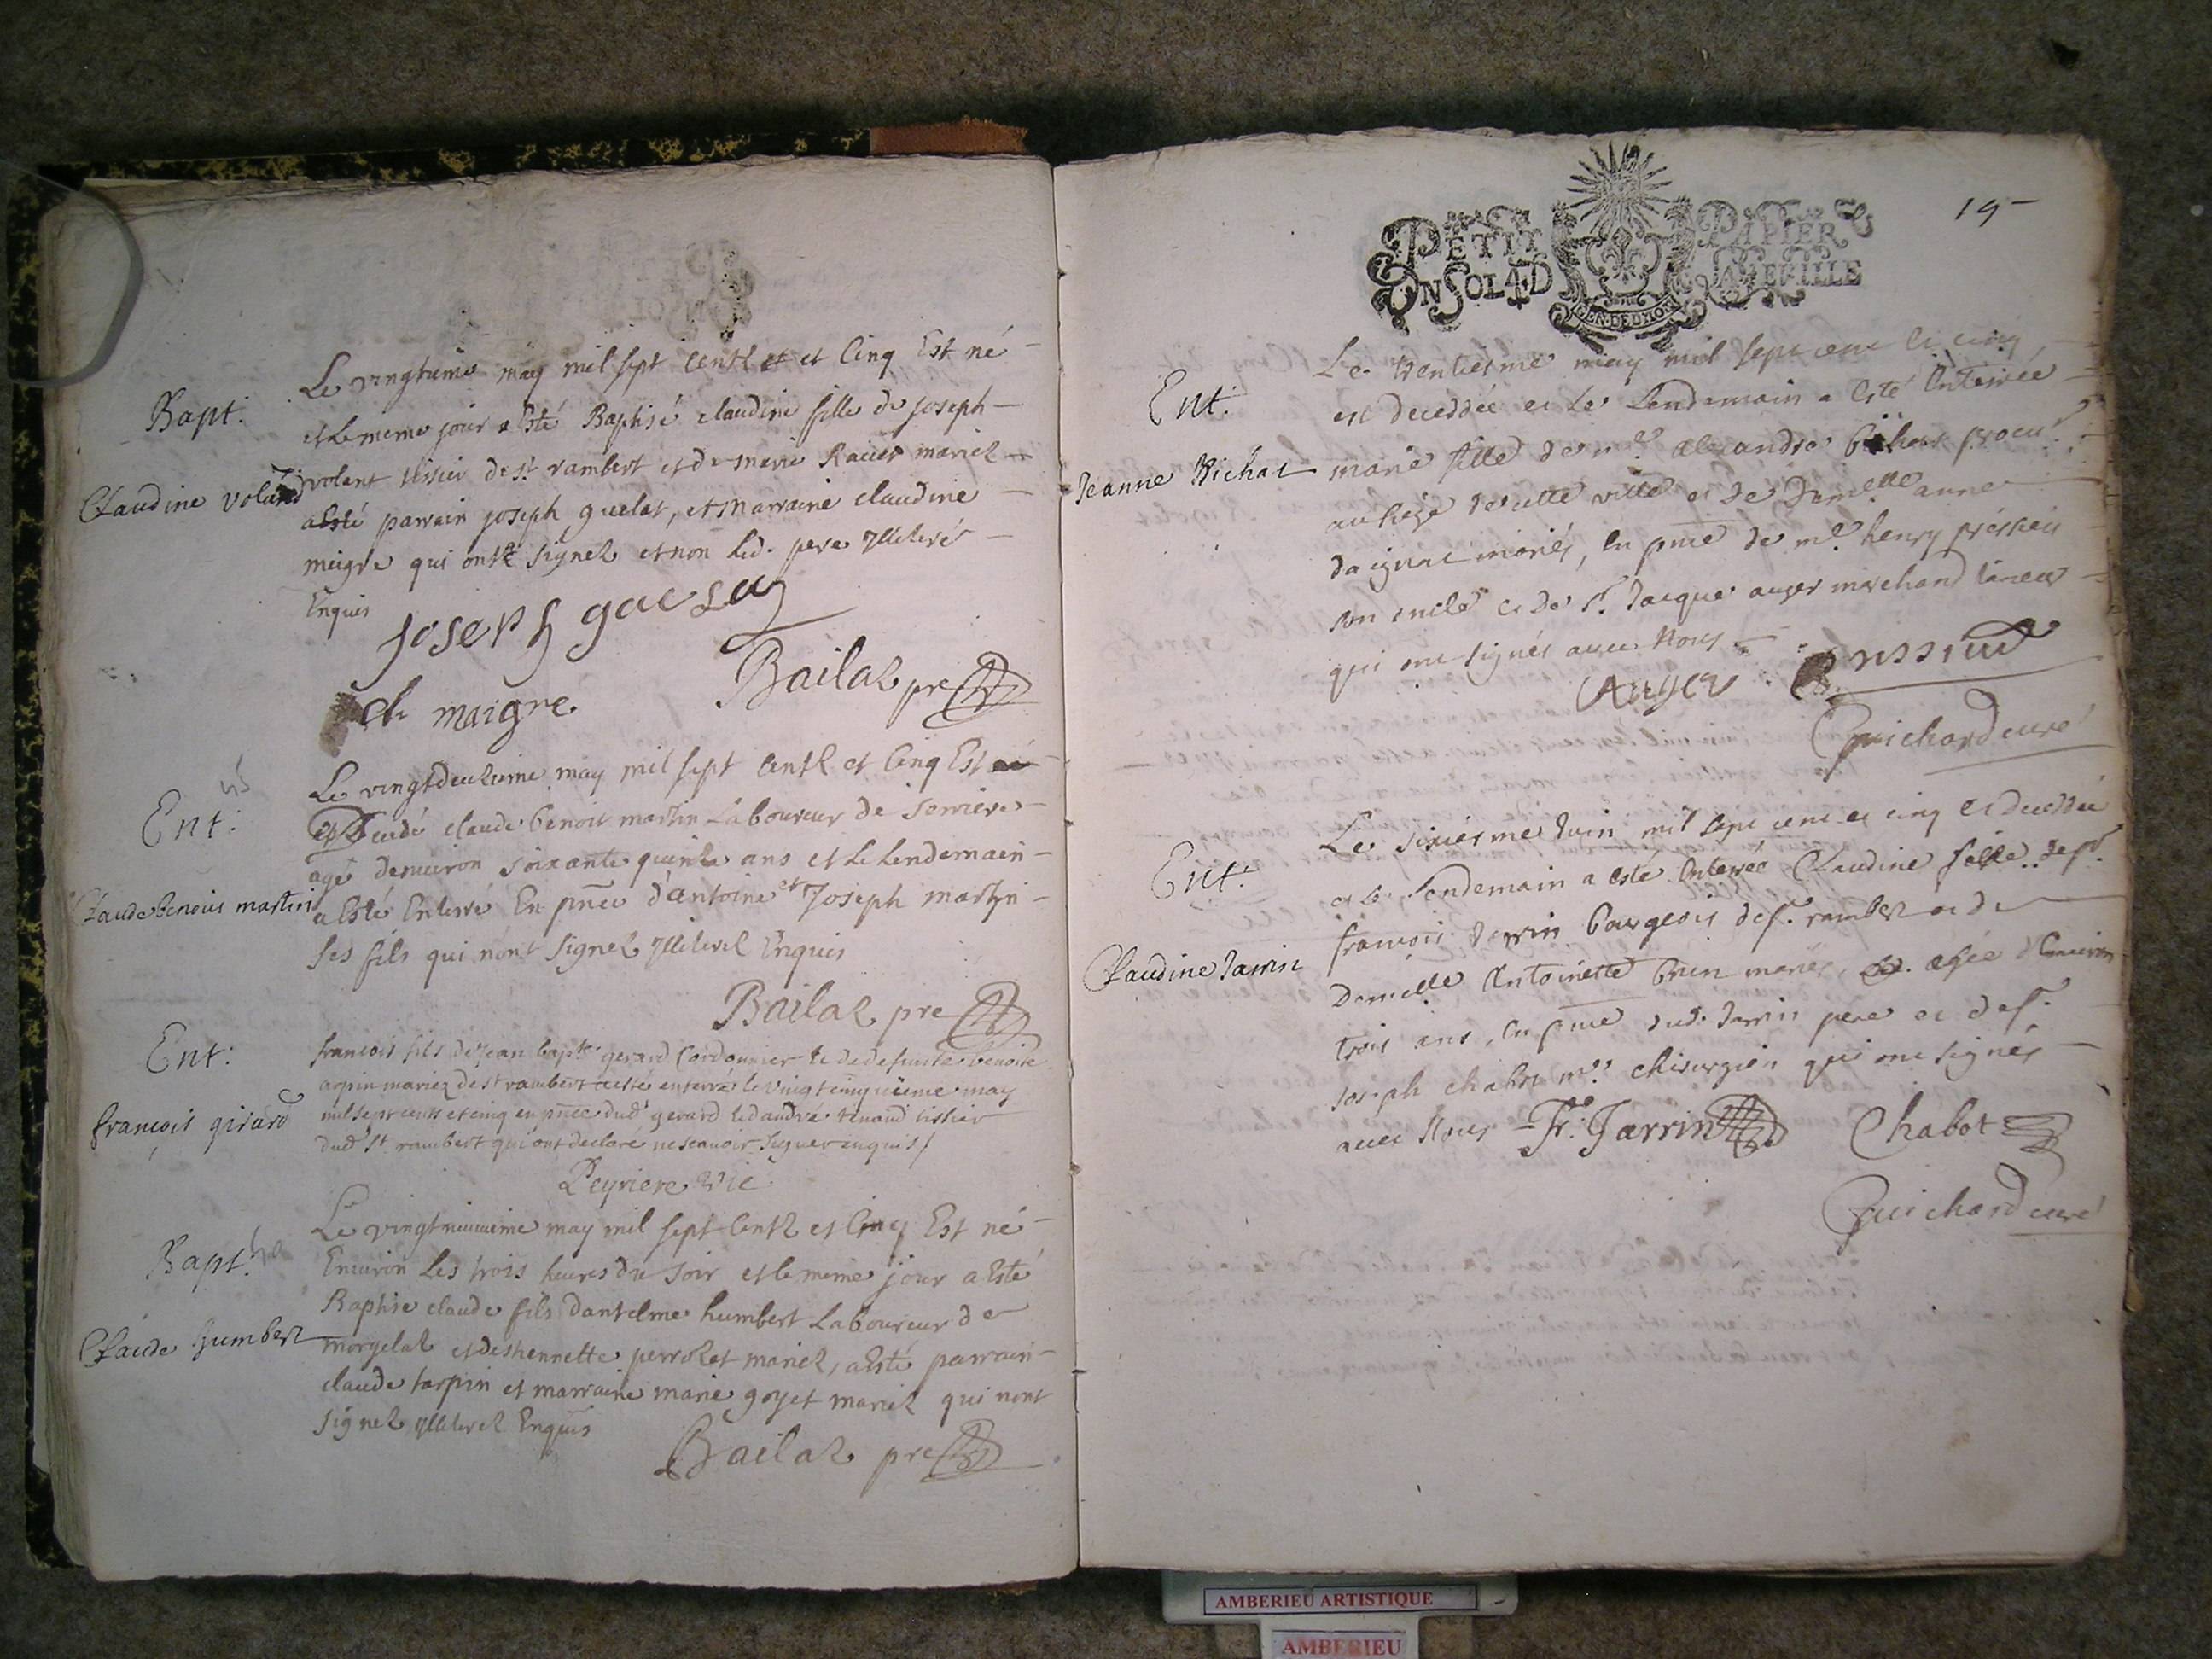 Bapt.
Claudine voland
Le vingtieme may mil sept centz et et Cinq Est né
et le meme jour a Esté Baptisé claudine fille de joseph
volant tissier de st. rambert et de marie Racier mariez
a Esté parrain joseph guelat, et marraine claudine
meigre qui ontz signez et non led. pere Illiteré
Enquis
joseph
cl. maigre
Bailaz pre
Ent.
Claude benoit martin
Le vingtdeuzieme may mil sept centz et Cinq Est
decedé claude benoit martin Laboureur de serriere
agé denviron soixante quinze ans et le lendemain
a Esté Enterré En pnce d'antoine et Joseph martin
ses fils qui nont signez Illiterez Enquis
Bailaz pre
Ent.
françois girard
francois fils de jean bapte gerard Cordonnier et de defunte benoite
arpin mariez de st rambert a esté enterré le vingt cinquieme may
mil sept cents et cinq en pnce dud gerard et d'andré renaud tissier
dud St. rambert qui ont declaré ne scavoir signer enquis /
Peyriere vic
Bapt.
Claude humbert
Le vingtneuvieme may mil sept Centz et Cinq Est né
Environ Les trois heures du soir et le meme jour a Esté
Baptise claude fils dantelme humbert Laboureur de
morgelaz et de thennette perrozet mariez, a Esté parrain
claude tarpin et marraine marie goyet mariez qui nont
signez Illiterez Enquis
Bailaz pre
19
PETIT PAPIER
UN SOL 4D LA FEUILLE
GEN. DE DYION
Ent.
Jeanne Bichat
Le trentiesme may mil sept cent et cinq
est decedée et Le Lendemain a Esté Enterrée
marie fille de me. alexandre bichat procur
au siege de cette ville et de Damelle anne
daignat mariés, En pnce de me. henry
son oncle et de sr. Jacque auger marchand taneur
qui ont signés avec Nous
Auger
Guichard curé
Ent.
Claudine Jarrin
Le sixiesme Juin mil sept cent et cinq est decedée
et Le Lendemain a esté Enterrée Claudine fille de sr.
francois Jarrin bourgeois de st. rambert et de
Damelle Antoinette brun mariés, agée d'Environ
trois ans, En pnce dud. Jarrin pere et de sr.
joseph chabot me. chirurgien qui ont signés
avec Nous
Fr. Jarrin
Chabot
Guichard curé
AMBERIEU ARTISTIQUE
AMBERIEU